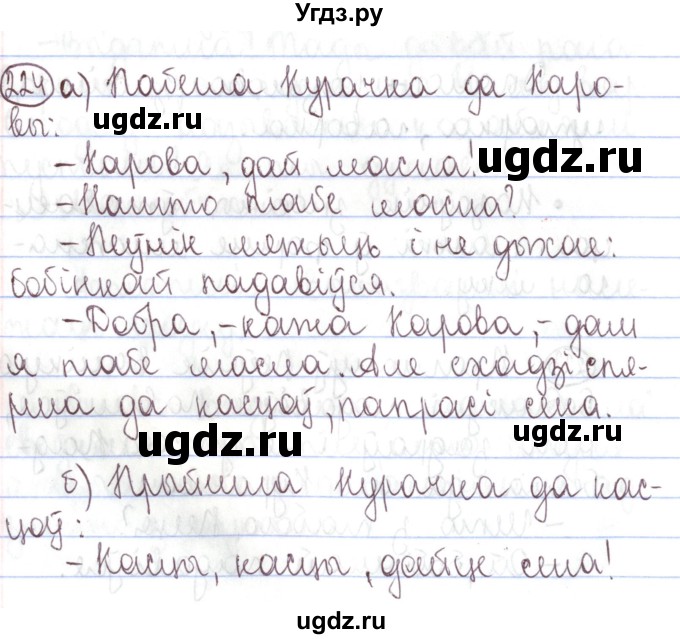 Угдз.ру
224 а) Пабегла Курачка да Каро-
вы:
ugdz.ru
– Карова, дай масла!
ugdz.ru
– Нашто табе масла?
– Пеўнік ляжыць і не дыхае:
бобінкай падавіўся.
– Добра, – кажа Карова, – дам
я табе масла. Але схадзі спя-
рша да касцоў, папрасі сена.
ugdz.ru
ugdz.ru
б) Прыйшла Курачка да кас-
цоў:
– Касцы, касцы, дайце сена!
ugdz.ru
ugdz.ru